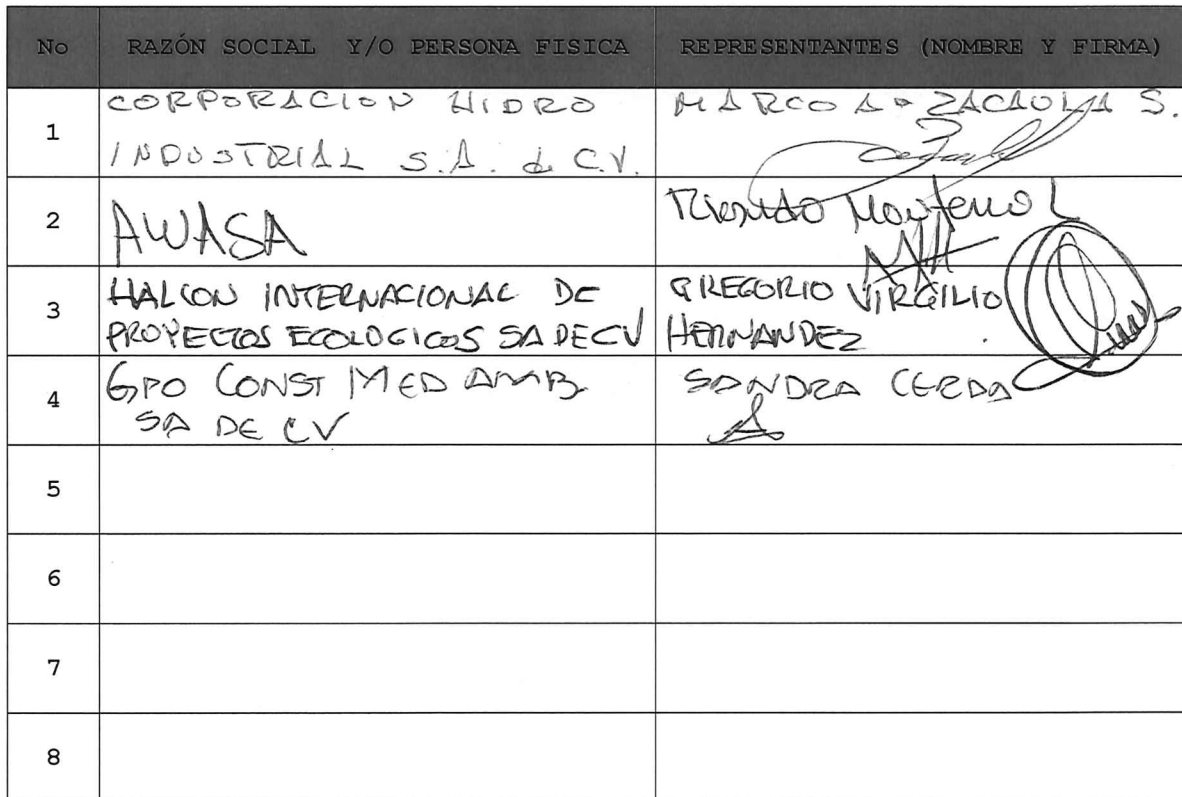 No RAZÓN SOCIAL Y/O PERSONA FISICA REPRESENTANTES (NOMBRE Y FIRMA)
1
CORPORACION HIDRO
INDUSTRIAL S.A. d C.V.
MARCO A. S.
2
AWASA
Montero L
3
HALCON INTERNACIONAL DE
PROYECTOS ECOLOGICOS SA DE CV
GREGORIO VIRGILIO
HERNANDEZ
4
GPO CONST MED AMB
SA DE CV
SANDRA CERDA
5
6
7
8